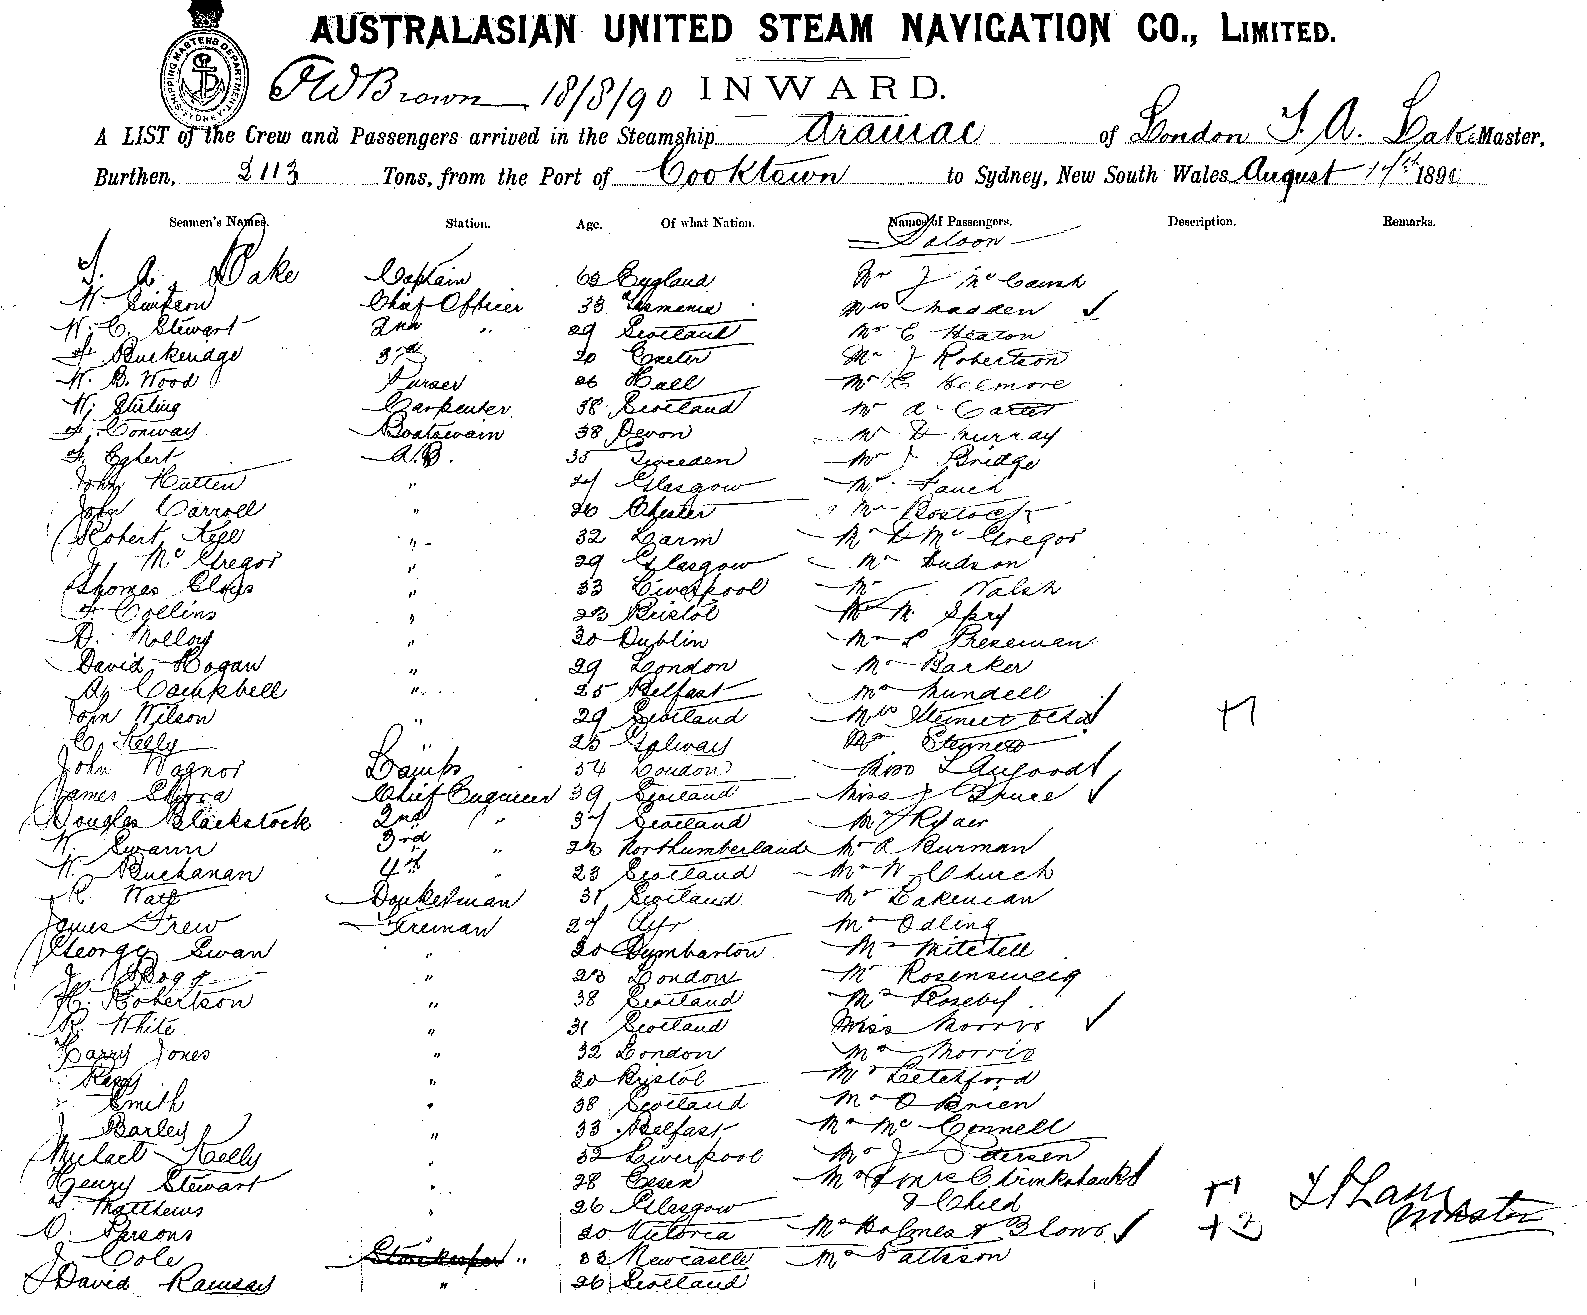 AUSTRALASIAN UNITED STEAM NAVIGATION CO., LIMITED.
SHIPPING MASTERS DEPARTMENT SYDNEY
F W Brown 18/8/90 INWARD.
A LIST of the Crew and Passengers arrived in the Steamship Aramac of London T. A. Lake Master,
Burthen, 2113 Tons, from the Port of Cooktown to Sydney, New South Wales August 17th 1890
Seamen's Names. Station. Age. Of what Nation. Names of Passengers. Description. Remarks.
Saloon
T. A. Lake Captain England Mr J Mc
W. Simpson Chief Officer 33 Tasmania Mrs Madden
W. C. Stewart 2nd " 29 Scotland Mr C Heaton
3rd 20 Exeter Mr J Robertson
W. B. Wood Purser 26 Hull Mr Holmore
W. Stirling Carpenter 38 Scotland Mr A Carter
F. Conway Boatswain 38 Devon Mr D Murray
F. Egbert A.B. 35 Sweden Mr J Bridge
John Hutten " 24 Glasgow Mr
John Carroll " 26 Chester Mr Bostock
Robert Kell " 32 Larm Mr D Mc Gregor
J. Mc Gregor " 29 Glasgow Mr Hudson
Thomas " 33 Liverpool Mr Walsh
F Collins " 23 Bristol Mr W. Spry
D. Molloy " 30 Dublin Mr L
David Hogan " 29 London Mr Barker
A. Campbell " 25 Belfast Mr Mundell
John Wilson " 29 Scotland Mrs
C. Kelly " 25 Galway Mr
John Wagnor Lamps 54 London Miss
James Chief Engineer 39 Scotland Miss J Bruce
Douglas Blackstock 2nd " 37 Scotland Mr
W. Swann 3rd " 23 Northumberland Mr A Burman
W. Buchanan 4th " 23 Scotland Mr W Church
R. Watt Donkeyman 31 Scotland Mr Lakeman
James Frew Fireman 27 Ayr Mr Odling
George Swan " 30 Dumbarton Mr Mitchell
J. Hogg " 23 London Mr Rosensweig
H. Robertson " 38 Scotland Mr Roseby
R. White " 31 Scotland Miss Morris
Harry Jones " 32 London Mr Morris
" 30 Bristol Mr Letchford
Smith " 38 Scotland Mr O Brien
J. Barley " 33 Belfast Mr Mc Connell
Michael Kelly " 32 Liverpool Mr J Petersen
Henry Stewart " 28 Essen Mr
Matthews " 26 Glasgow & Child
O. Parsons " 30 Victoria Mr Holmes & 3 Sons
J. Cole Storekeeper " 33 Newcastle Mr Pattison
David Ramsay " 26 Scotland